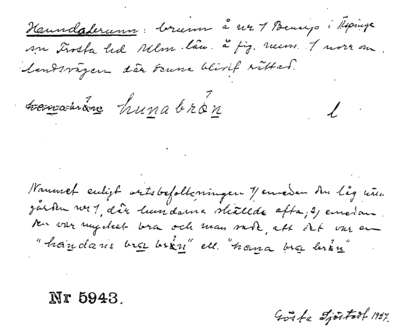 Hunndabrunn: brunn å nr 1 Benarp i Äspinge
sn Frosta hd Mlm. län. å fig. num. 1 norr om
landsvägen där denna blivit rättad.
hunabrån
l
Namnet enligt ortsbefolkningen 1) emedan den låg nära
gården nr 1, där hundarna skällde ofta; 2) emedan
den var mycket bra och man sade, att det var en
"handans bra brån" ell. "hona bra brån"
Nr 5943.
Gösta Sjöstedt 1927.